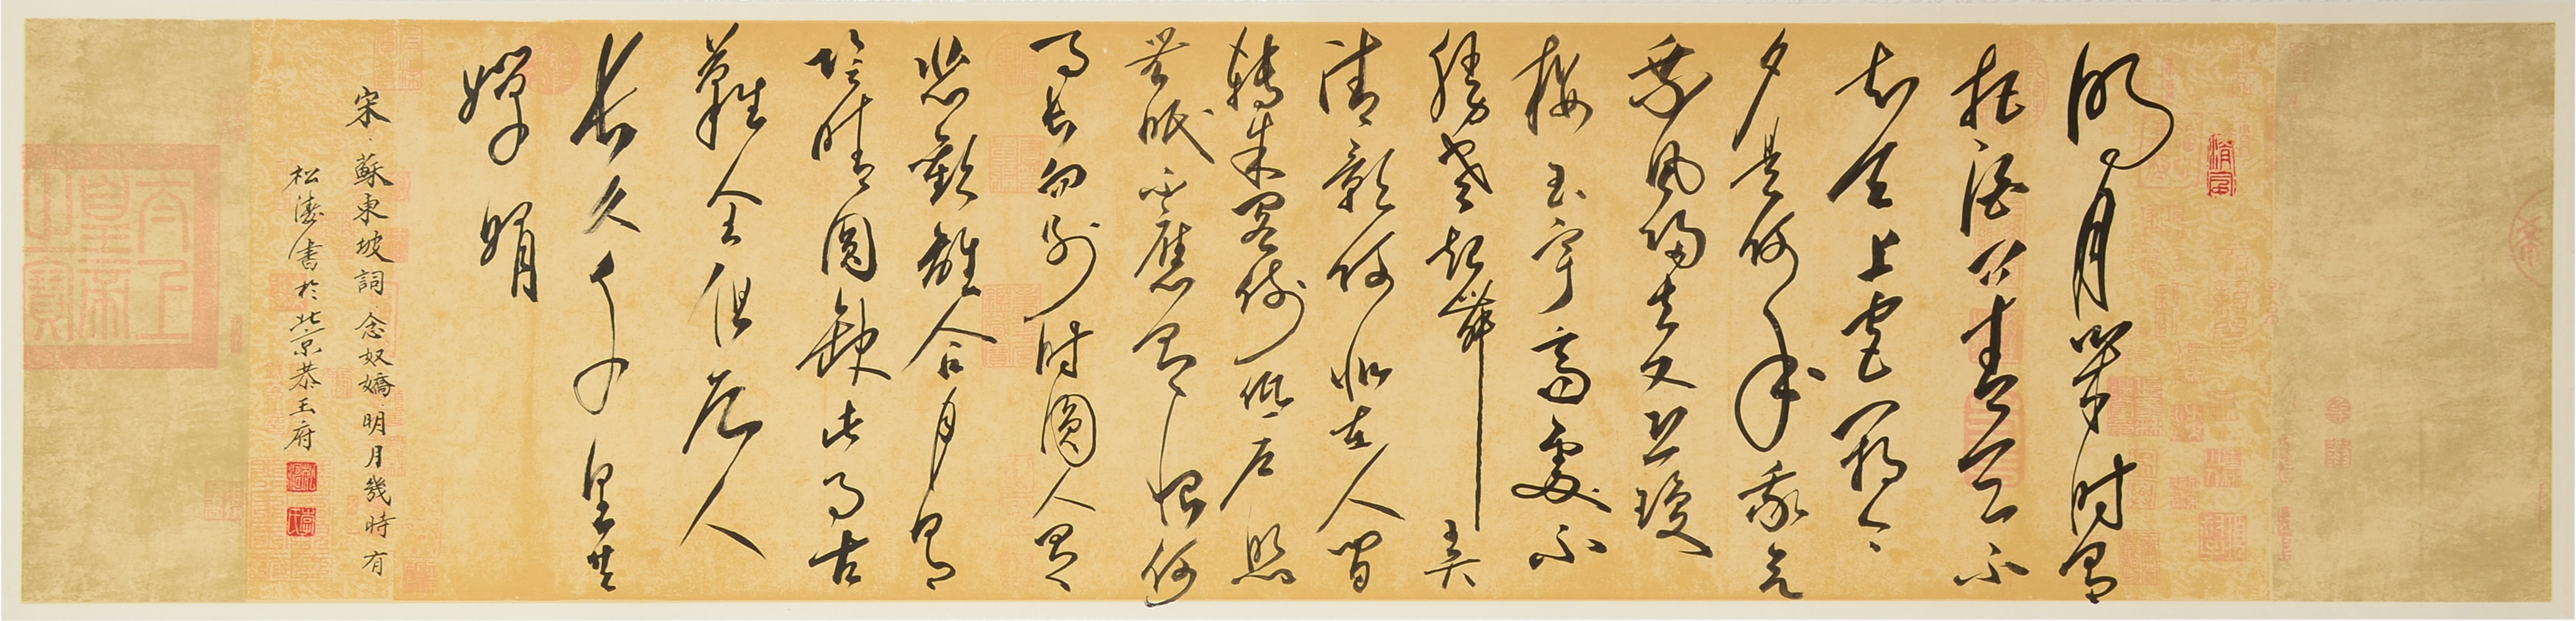 明月幾時有
把酒問青天不
知天上宮闕今
夕是何年我欲
乘風歸去又恐瓊
樓玉宇高處不
勝寒起舞弄
清影何似在人間
轉朱閣綺低戶照
無眠不應有恨何
事長向別時圓人有
悲歡離合月有
陰晴圓缺此事古
難全但願人
長久千里共
嬋娟
宋·蘇東坡詞念奴嬌·明月幾時有
松濤書於北京恭王府
太上皇帝之寶